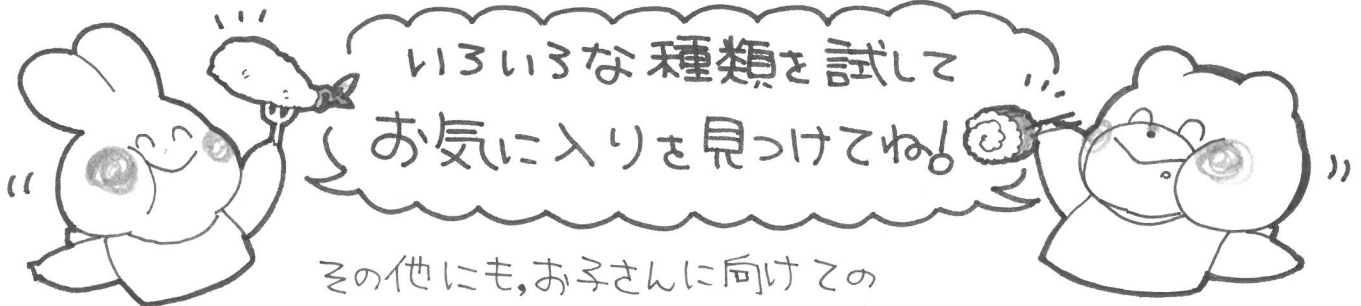 いろいろな種類を試して
お気に入りを見つけてね!
その他にも,お子さんに向けての